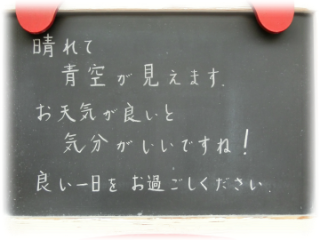 晴れて
青空が見えます.
お天気が良いと
気分がいいですね!
良い一日をお過ごしください.